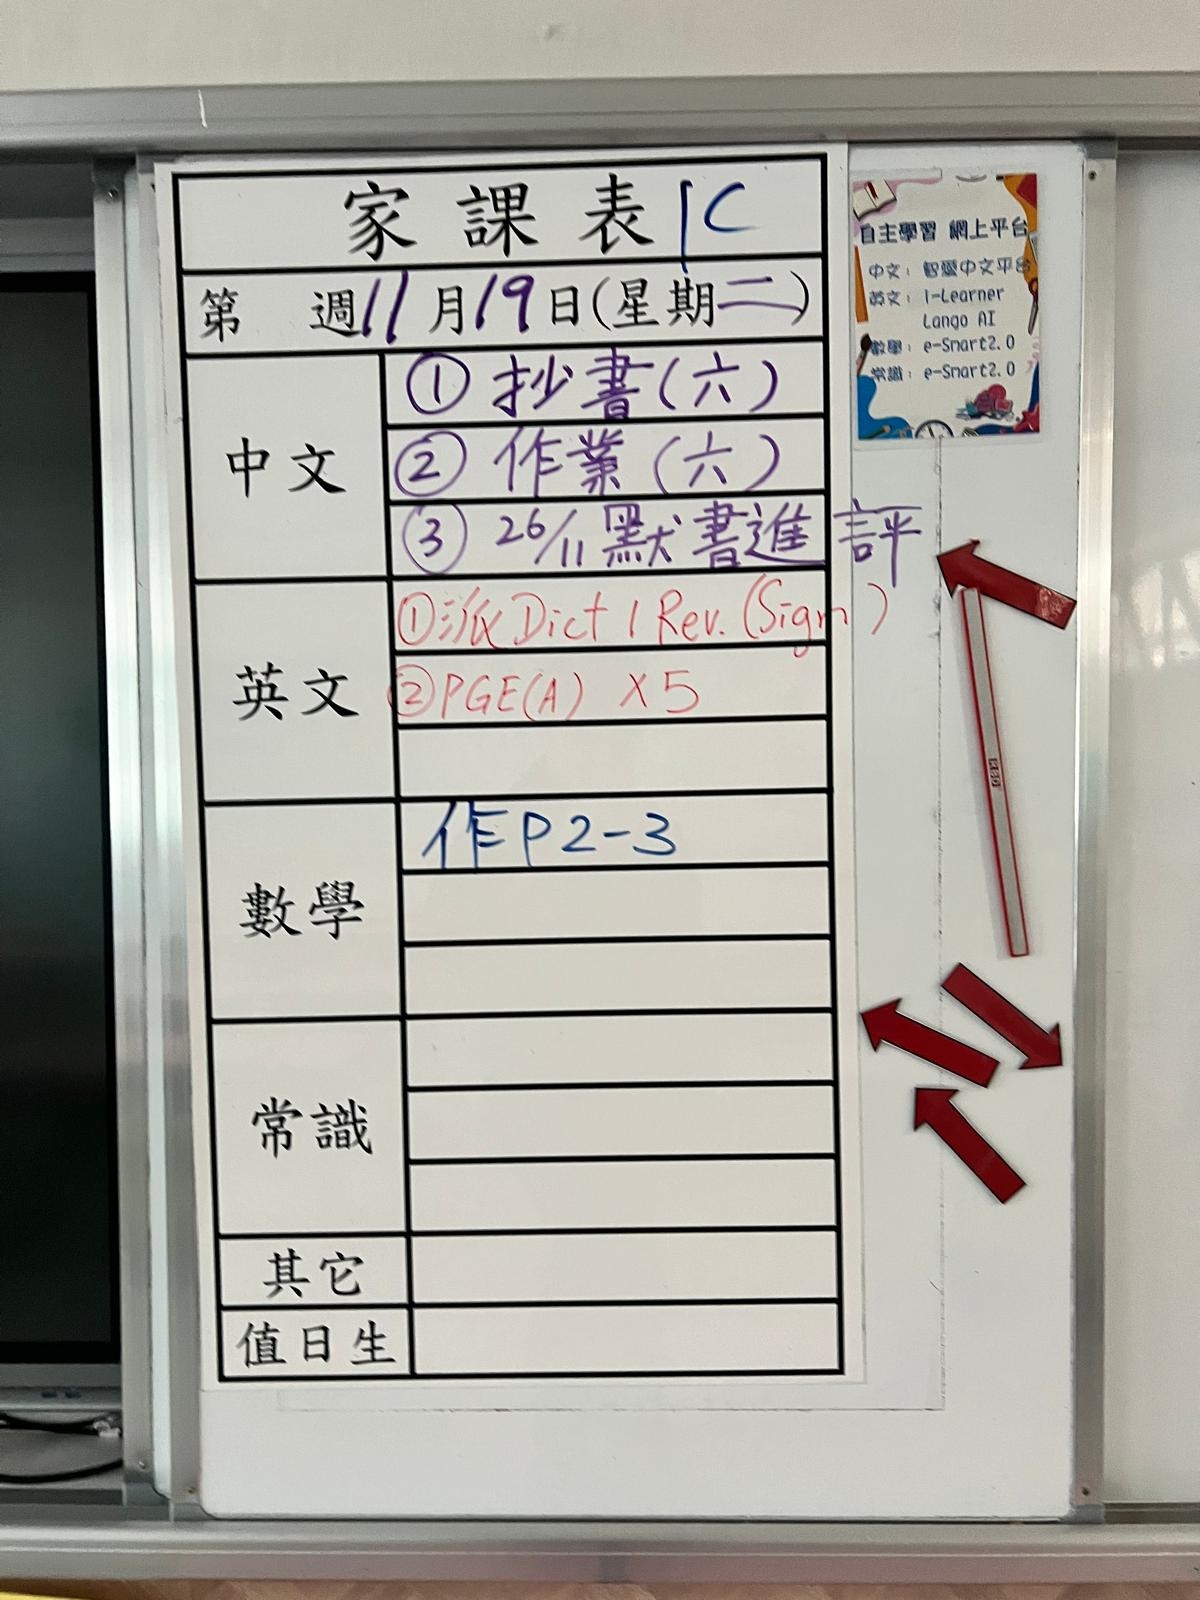 家課表 1C
第 週 11月19日(星期二)
中文
① 抄書(六)
② 作業(六)
③ 26/11 默書進評
英文
① 派 Dict 1 Rev. (Sign)
② PGE(A) X5
數學
作 P2-3
常識
其它
值日生
自主學習 網上平台
中文: 智愛中文平台
英文: i-Learner
Lango AI
數學: e-Smart2.0
常識: e-Smart2.0